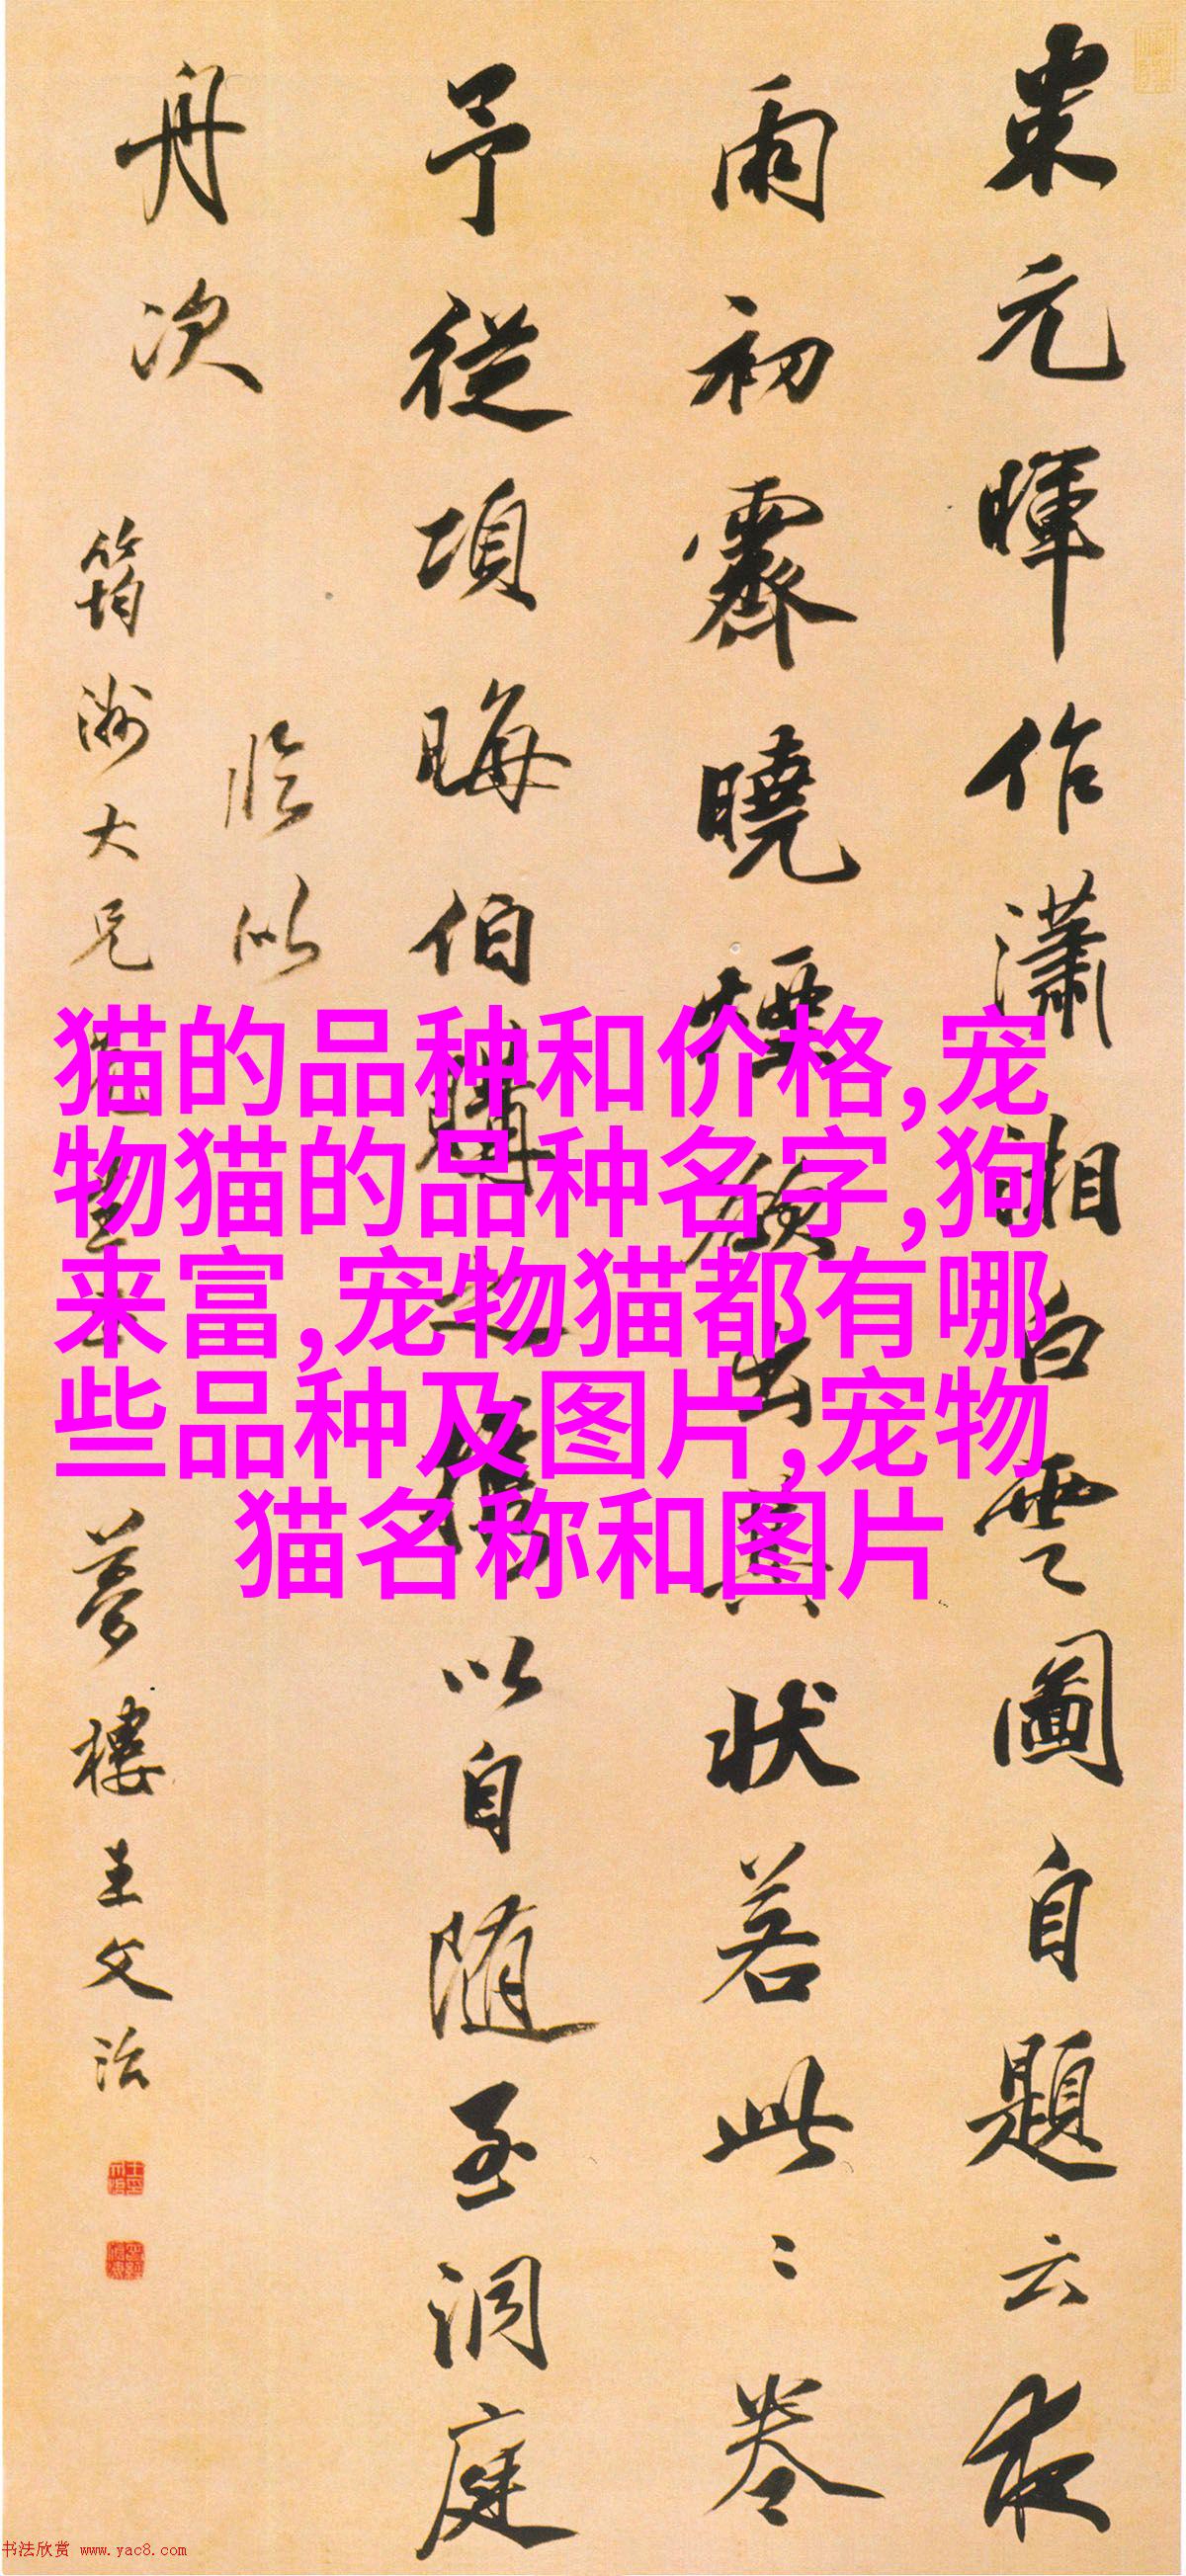 米元暉作瀟湘白雲圖自題云夜
雨初霽曉煙欲出其狀若此〻卷
予從項晦伯購之携以自随至洞庭
舟次
臨似
筠洲大兄
夢樓王文治
猫的品种和价格,宠
物猫的品种名字,狗
来富,宠物猫都有哪
些品种及图片,宠物
猫名称和图片
书法欣赏 www.yac8.com